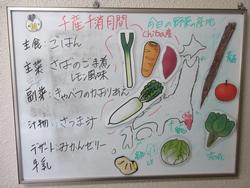 千産千消月間
今日の野菜の産地
Chiba産
主食：ごはん
主菜：さばのごま煮
レモン風味
副菜：キャベツのかおりあえ
汁物：さつま汁
デザート：みかんゼリー
牛乳